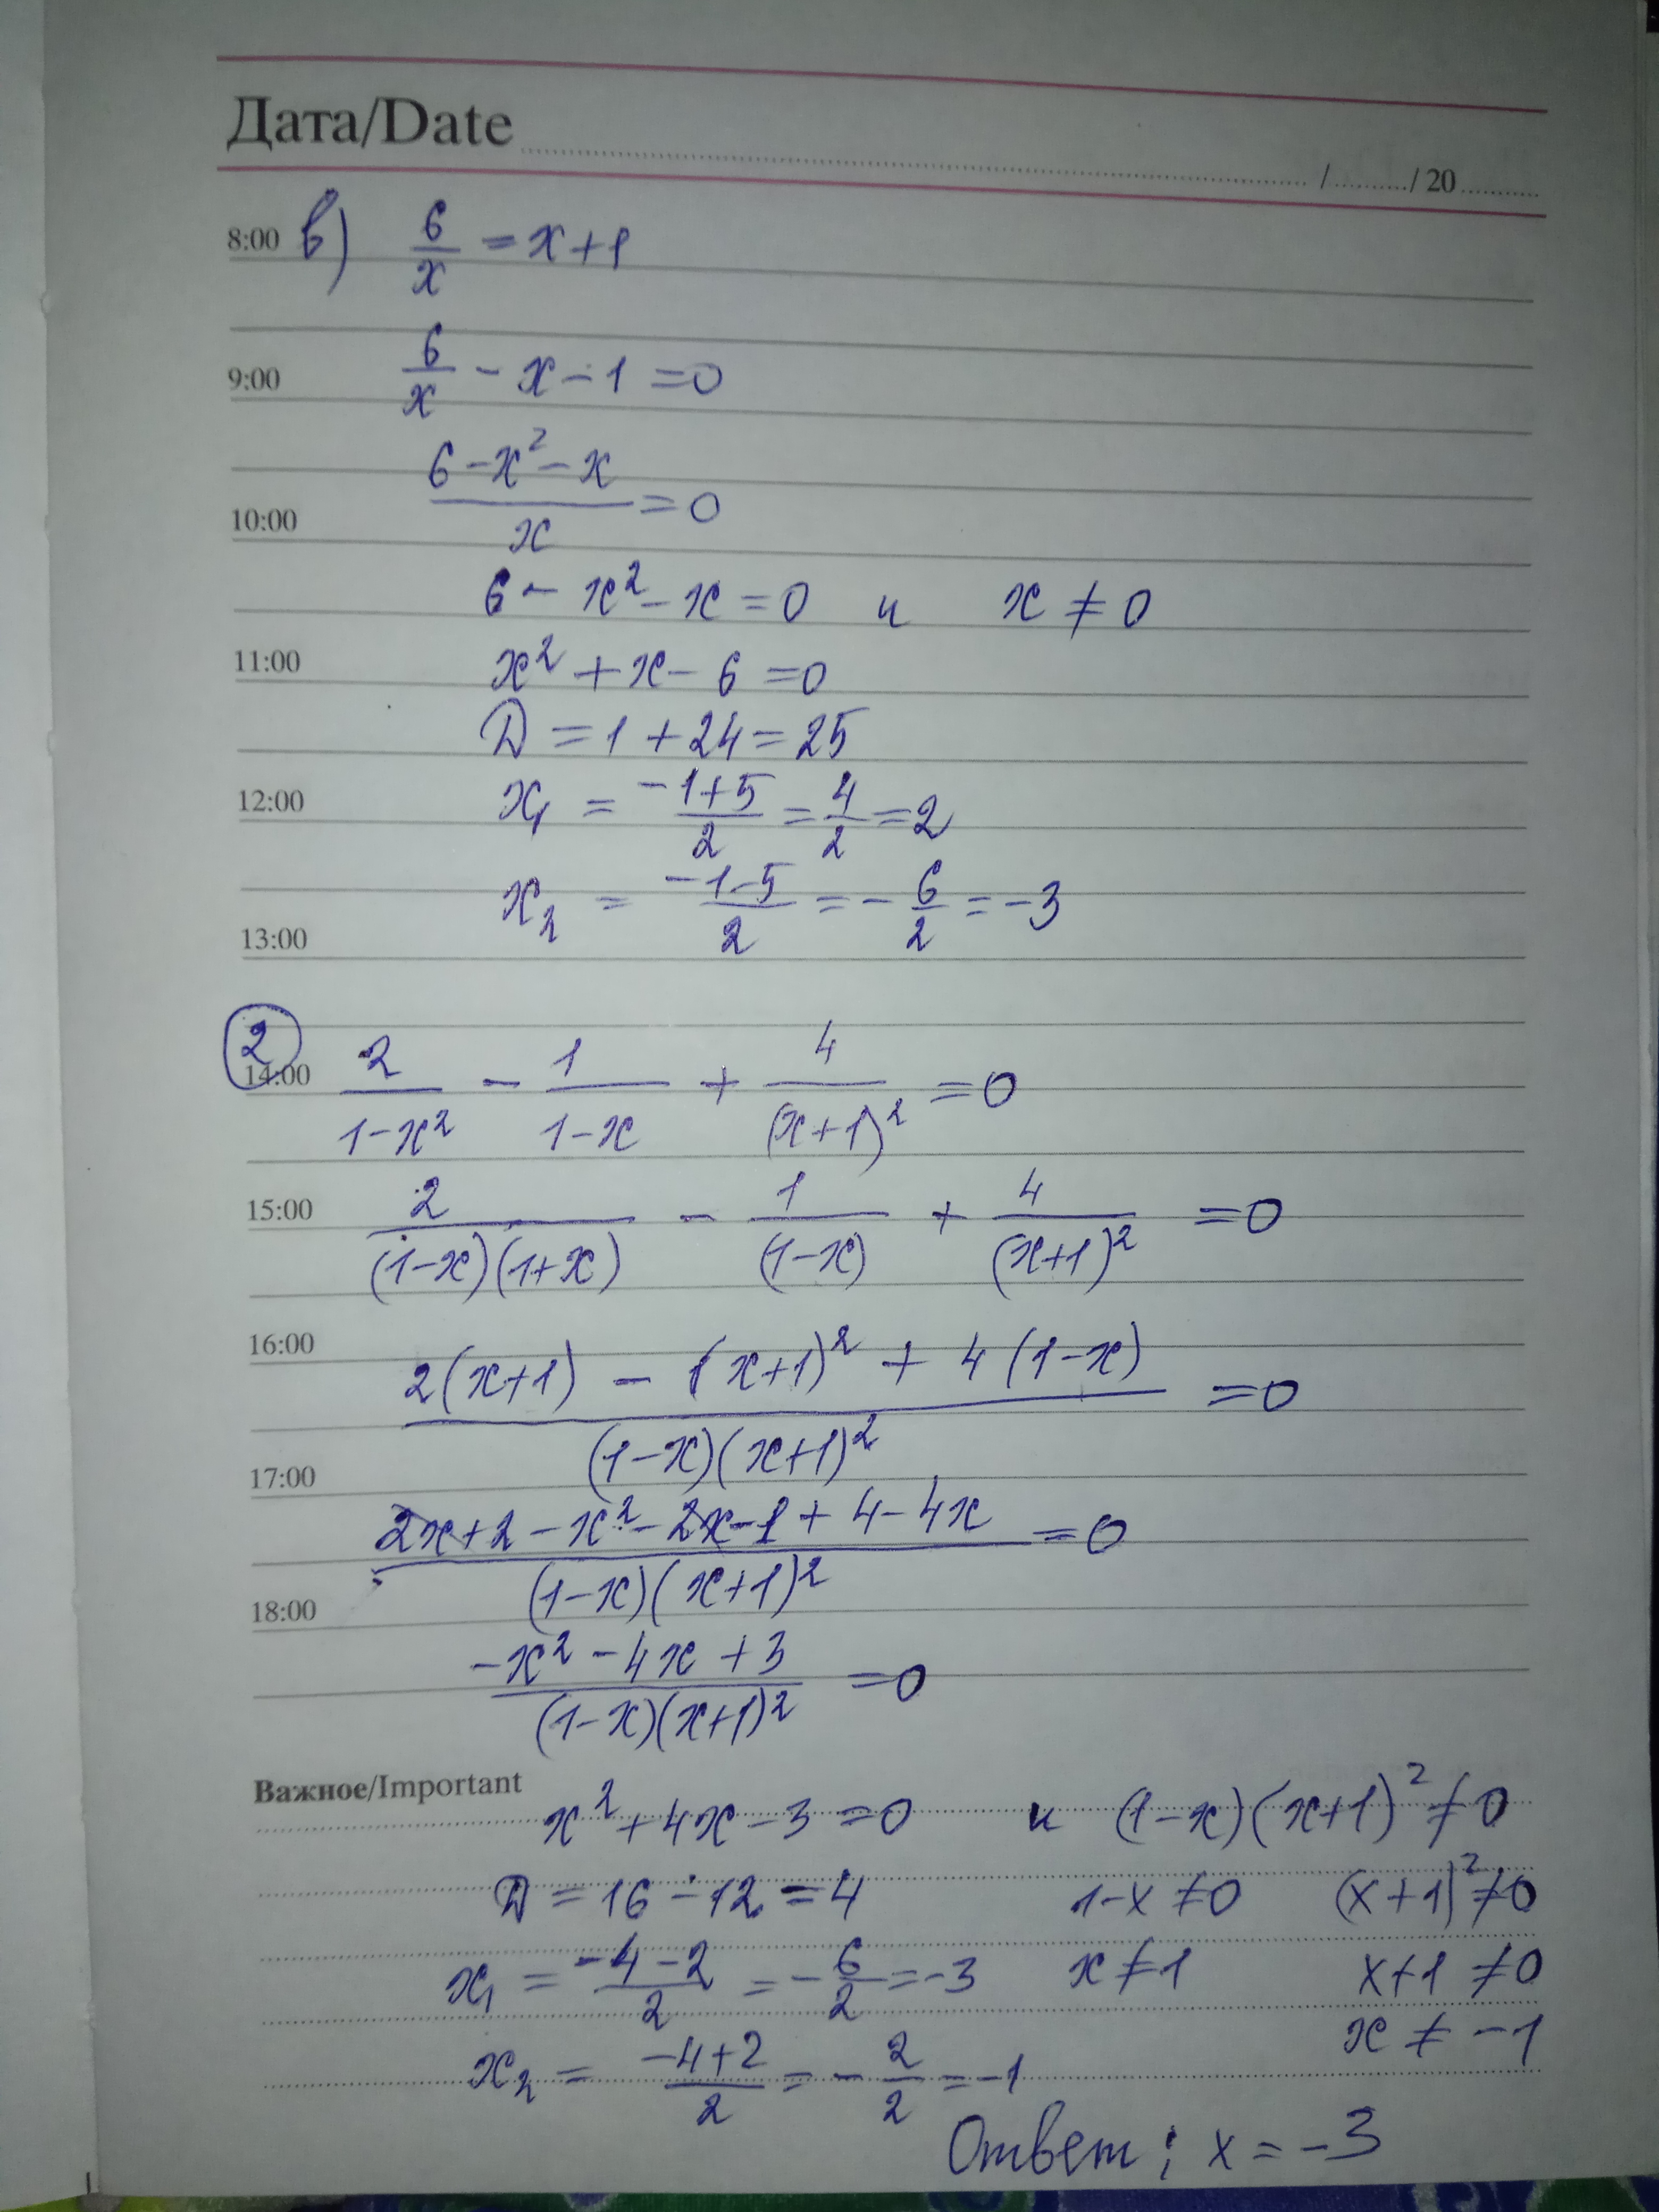 Дата/Date ........ / ........ / 20 ........
8:00 в) 6/x = x+1
9:00 6/x - x - 1 = 0
(6 - x² - x)/x = 0
10:00
6 - x² - x = 0 и x ≠ 0
11:00 x² + x - 6 = 0
D = 1 + 24 = 25
12:00 x₁ = (-1+5)/2 = 4/2 = 2
x₂ = (-1-5)/2 = -6/2 = -3
13:00
②
14:00 2/(1-x²) - 1/(1-x) + 4/(x+1)² = 0
15:00 2/((1-x)(1+x)) - 1/(1-x) + 4/(x+1)² = 0
16:00 (2(x+1) - 1(x+1)² + 4(1-x))/((1-x)(x+1)²) = 0
17:00
(2x+2 - x² - 2x - 1 + 4 - 4x)/((1-x)(x+1)²) = 0
18:00
(-x² - 4x + 3)/((1-x)(x+1)²) = 0
Важное/Important
x² + 4x - 3 = 0 и (1-x)(x+1)² ≠ 0
D = 16 - 12 = 4 1-x ≠ 0 (x+1)² ≠ 0
x₁ = (-4-2)/2 = -6/2 = -3 x ≠ 1 x+1 ≠ 0
x ≠ -1
x₂ = (-4+2)/2 = -2/2 = -1
Ответ: x = -3